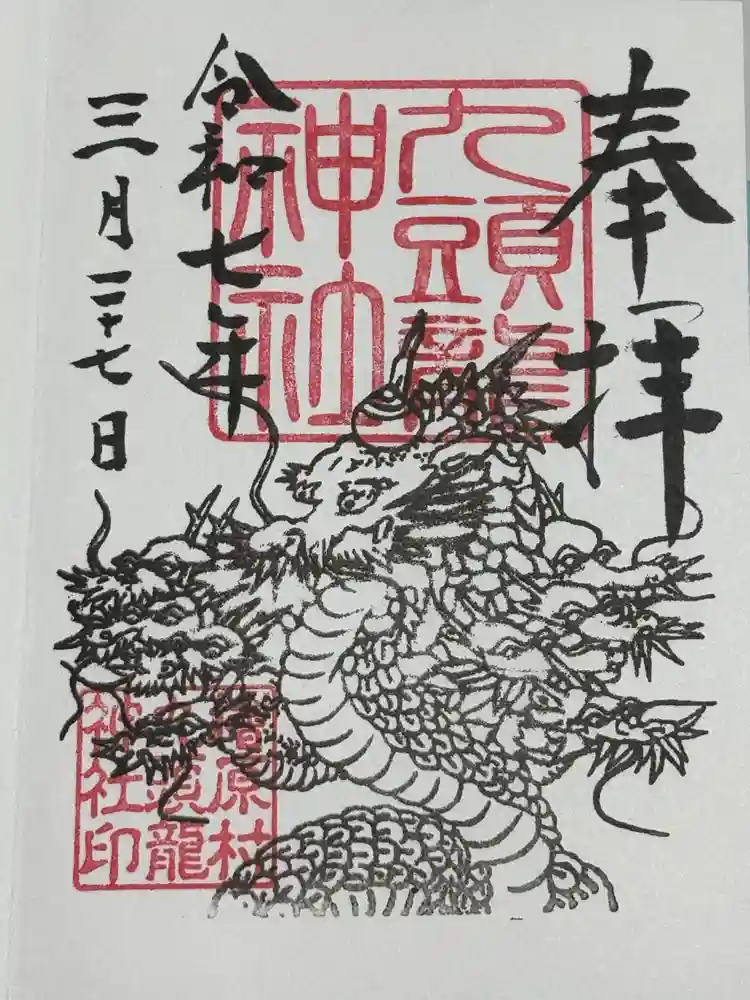 奉拝
九頭龍
神社
令和七年
三月二十七日
檜原村
九頭龍
神社印